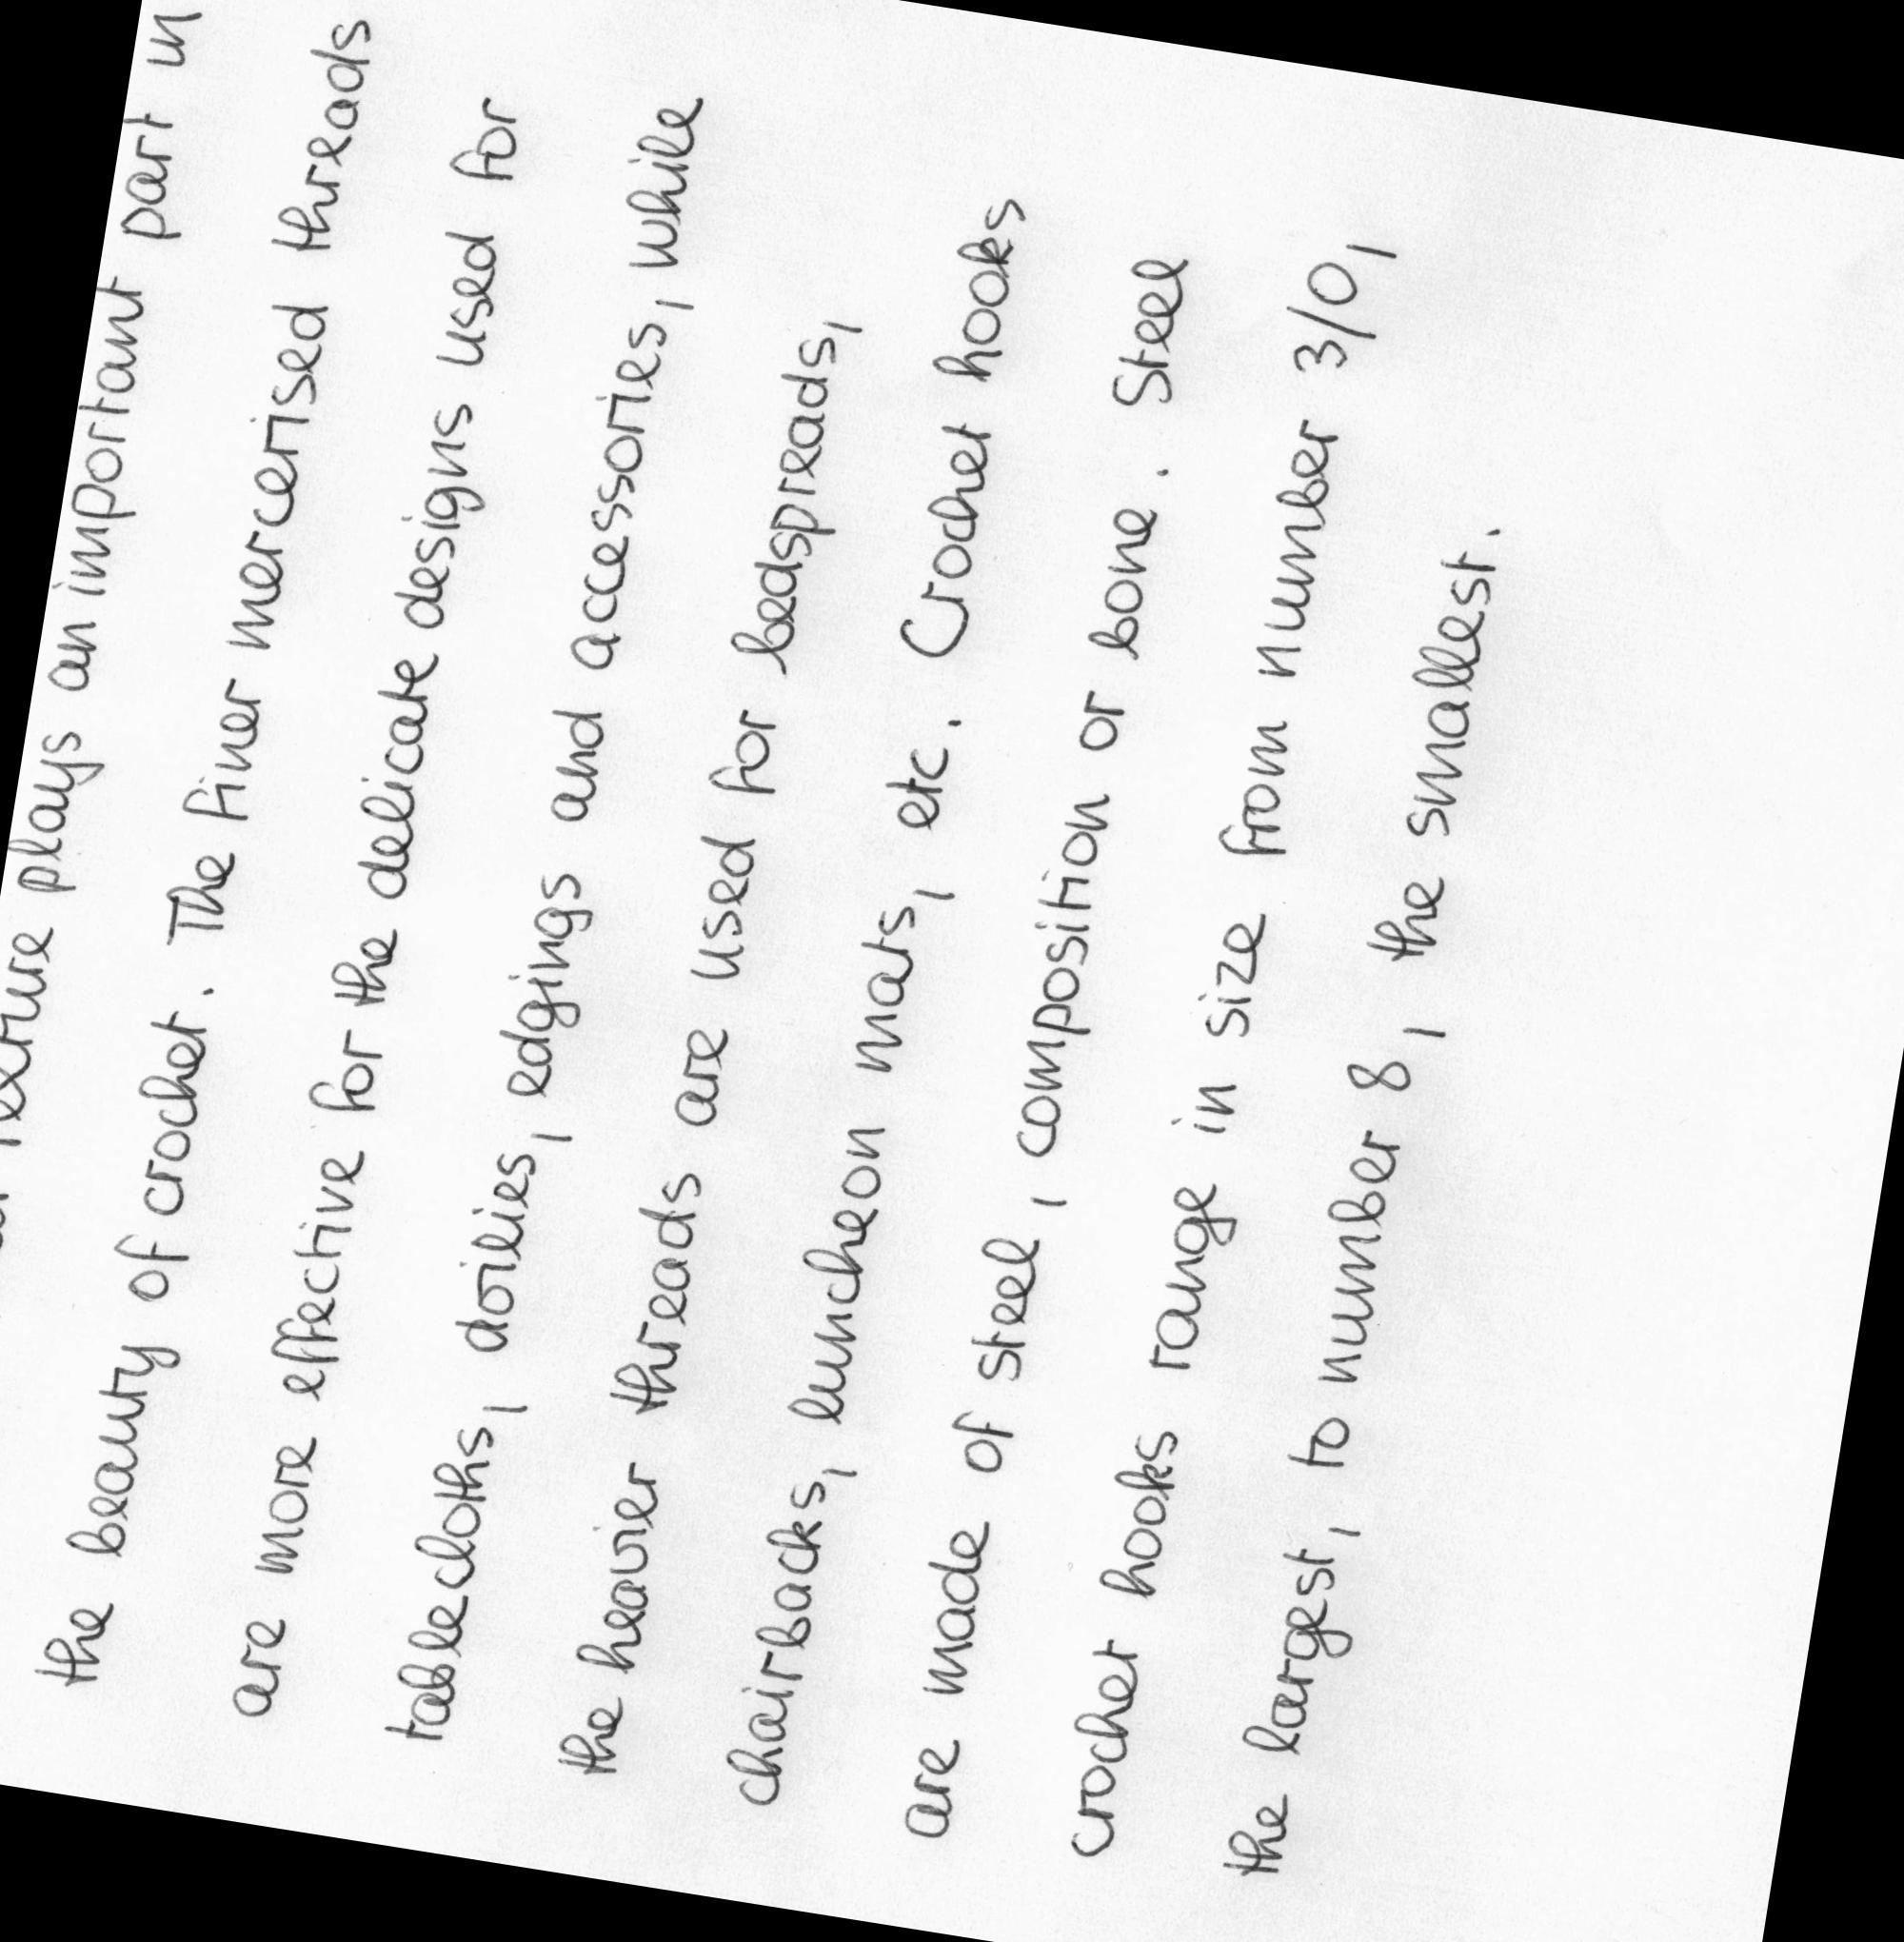 texture plays an important part in
the beauty of crochet. The finer mercerised threads
are more effective for the delicate designs used for
tablecloths, doilies, edgings and accessories, while
the heavier threads are used for bedspreads,
chairbacks, luncheon mats, etc. Crochet hooks
are made of steel, composition or bone. Steel
crochet hooks range in size from number 3/0,
the largest, to number 8, the smallest.